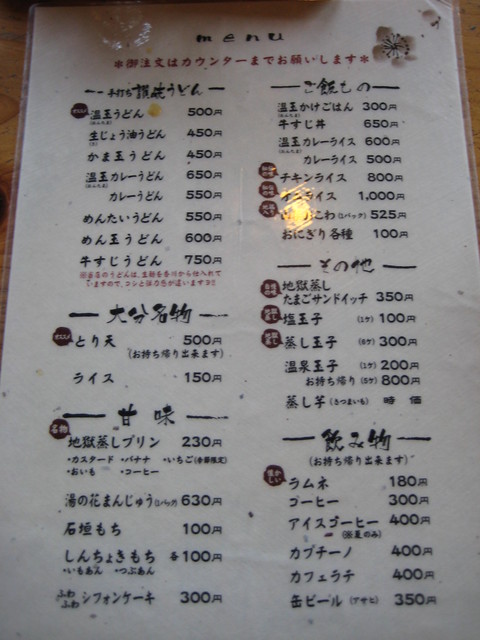 menu
＊御注文はカウンターまでお願いします＊
手打ち 讃岐うどん
温玉うどん 500円
生じょう油うどん 450円
かま玉うどん 450円
温玉カレーうどん 650円
カレーうどん 550円
めんたいうどん 550円
めん玉うどん 600円
牛すじうどん 750円
※当店のうどんは、生麺を香川から仕入れて
いますので、コシと弾力感が違いますヨ!!
大分名物
とり天 500円
(お持ち帰り出来ます)
ライス 150円
甘味
名物
地獄蒸しプリン 230円
・カスタード ・バナナ ・いちご(季節限定)
・おいも ・コーヒー
湯の花まんじゅう(1パック) 630円
石垣もち 100円
しんちょきもち 各100円
・いもあん ・つぶあん
ふわふわ シフォンケーキ 300円
ご飯もの
温玉かけごはん 300円
牛すじ丼 650円
温玉カレーライス 600円
カレーライス 500円
チキンライス 800円
ライス 1,000円
こわ(1パック) 525円
おにぎり各種 100円
その他
地獄蒸し
たまごサンドイッチ 350円
塩玉子 (1ケ) 100円
蒸し玉子 (6ケ) 300円
温泉玉子 (1ケ) 200円
お持ち帰り (5ケ) 800円
蒸し芋 (さつまいも) 時価
飲み物
(お持ち帰り出来ます)
懐かしい
ラムネ 180円
コーヒー 300円
アイスコーヒー 400円
(※夏のみ)
カプチーノ 400円
カフェラテ 400円
缶ビール (アサヒ) 350円